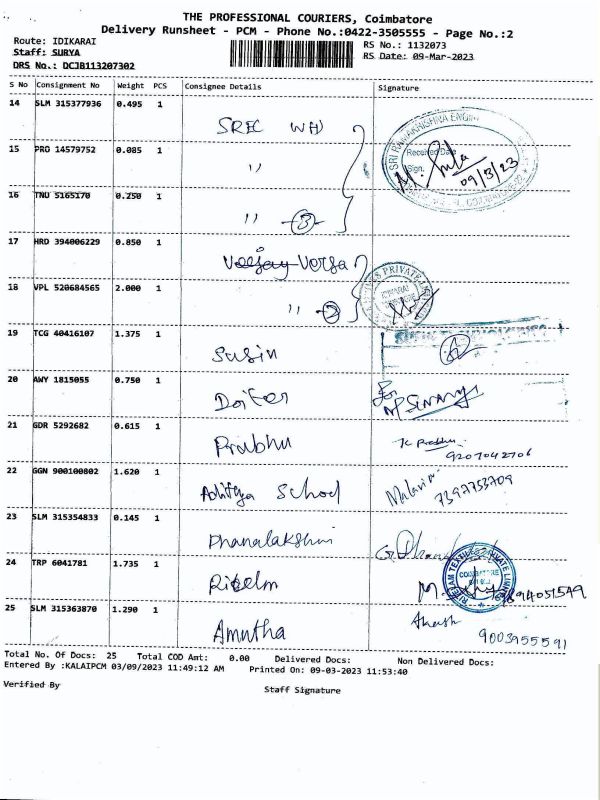 THE PROFESSIONAL COURIERS, Coimbatore
Delivery Runsheet - PCM - Phone No.:0422-3505555 - Page No.:2
Route: IDIKARAI
Staff: SURYA
DRS No.: DCJB113207302
RS No.: 1132073
RS Date: 09-Mar-2023
S No Consignment No Weight PCS Consignee Details Signature
14 SLM 315377936 0.495 1 SREC WH
SRI RAMAKRISHNA ENGIN
Received Date
Sign.
09/3/23
15 PRO 14579752 0.085 1 ''
16 TNU 5165170 0.250 1 '' - 3
17 HRD 394006229 0.850 1 Veejay Versa
18 VPL 520684565 2.000 1 '' - 2
19 TCG 40416107 1.375 1 Susin
20 AWY 1815055 0.750 1 Doitos
21 GDR 5292682 0.615 1 Prabhu K Prabhu
9207042706
22 GGN 900100802 1.620 1 Adhitya School
7397753709
23 SLM 315354833 0.145 1 Dhanalakshmi
24 TRP 6041781 1.735 1 Rieelm
COIMBATORE
25 SLM 315363870 1.290 1 Amutha Akash
9003955591
Total No. Of Docs: 25 Total COD Amt: 0.00 Delivered Docs: Non Delivered Docs:
Entered By :KALAIPCM 03/09/2023 11:49:12 AM Printed On: 09-03-2023 11:53:40
Verified By Staff Signature